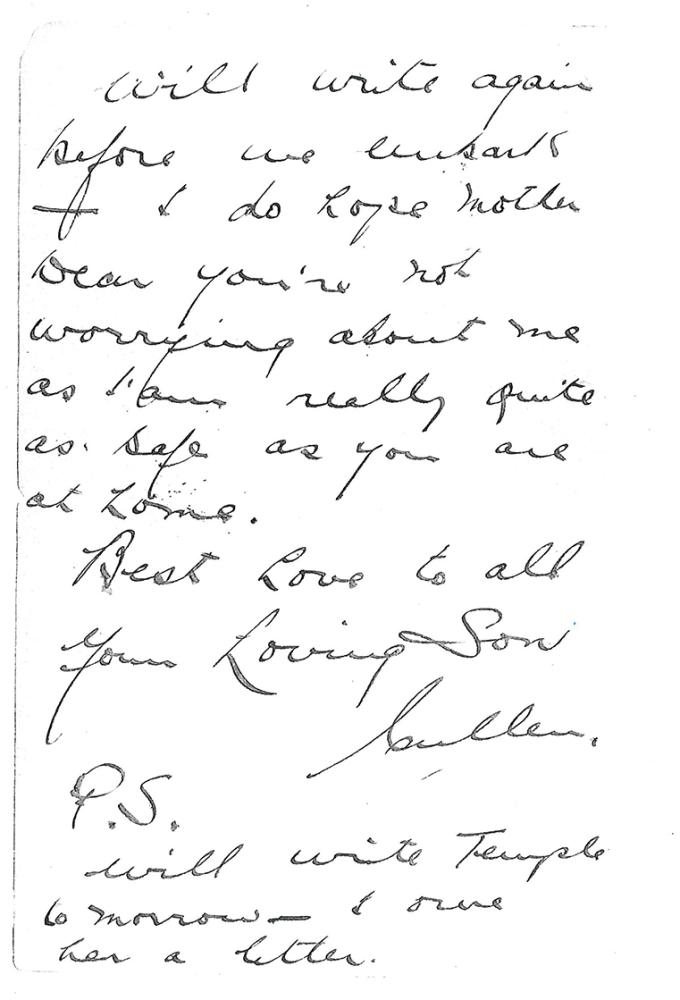 Will write again
before we embark
— I do hope Mother
Dear you're not
worrying about me
as I am really quite
as safe as you are
at home.
Best Love to all
Your Loving Son
Cullen.
P.S.
Will write Temple
tomorrow — I owe
her a letter.